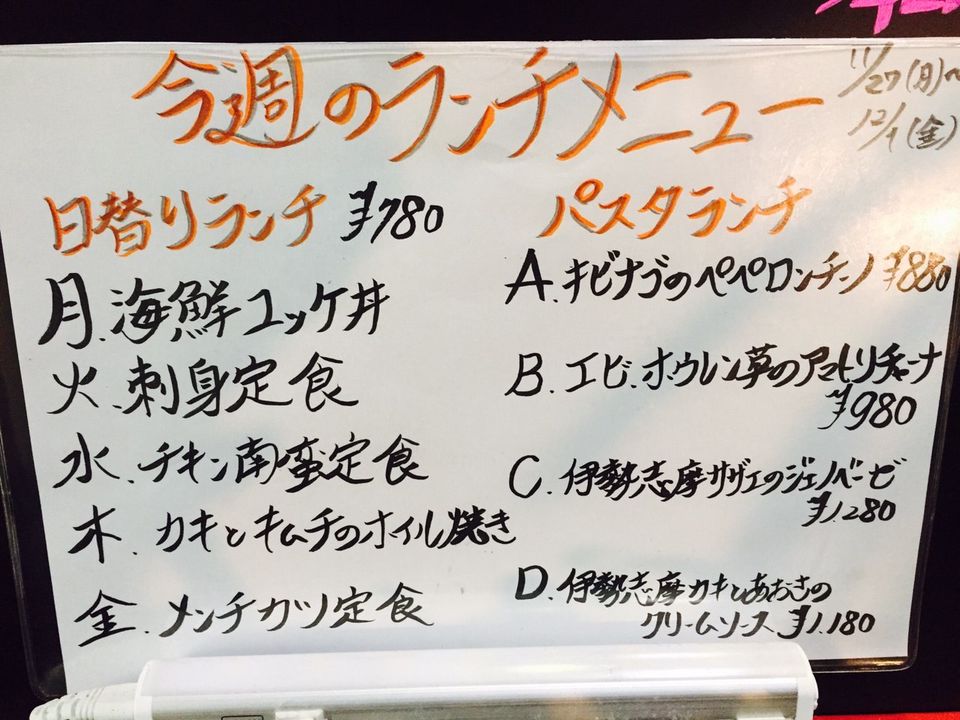 今週のランチメニュー
11/27(月)〜
12/1(金)
日替りランチ ¥780
月.海鮮ユッケ丼
火.刺身定食
水.チキン南蛮定食
木.カキとキムチのオイル焼き
金.メンチカツ定食
パスタランチ
A.キビナゴのペペロンチーノ ¥880
B.エビ、ホウレン草のアマトリチャーナ
¥980
C.伊勢志摩サザエのジェノベーゼ
¥1,280
D.伊勢志摩カキとあおさの
クリームソース ¥1,180